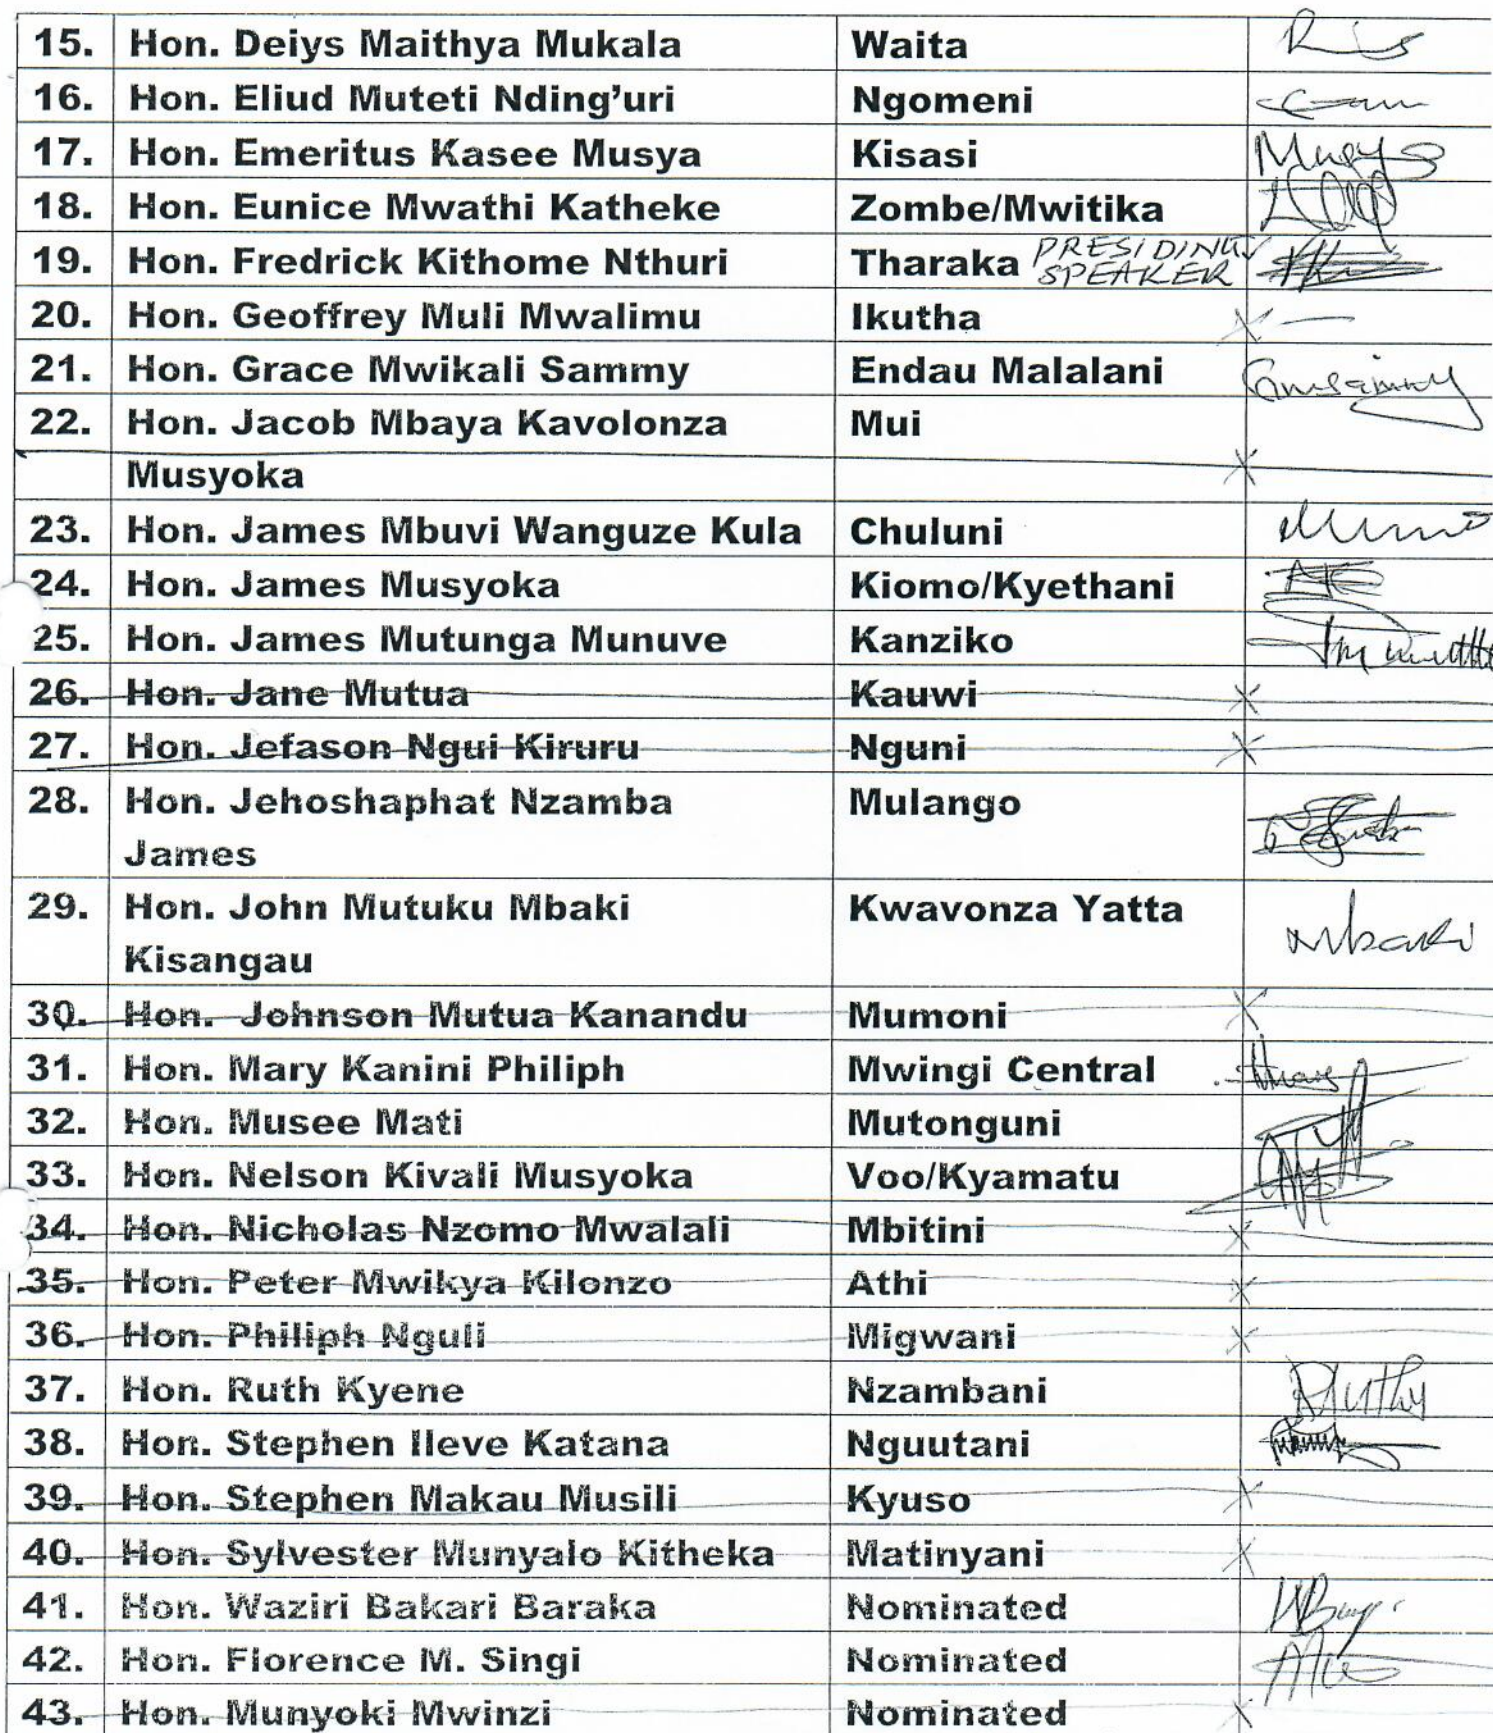 15. Hon. Deiys Maithya Mukala Waita
16. Hon. Eliud Muteti Nding'uri Ngomeni
17. Hon. Emeritus Kasee Musya Kisasi
18. Hon. Eunice Mwathi Katheke Zombe/Mwitika
19. Hon. Fredrick Kithome Nthuri Tharaka PRESIDING
SPEAKER
20. Hon. Geoffrey Muli Mwalimu Ikutha X —
21. Hon. Grace Mwikali Sammy Endau Malalani
22. Hon. Jacob Mbaya Kavolonza Mui
Musyoka X
23. Hon. James Mbuvi Wanguze Kula Chuluni
24. Hon. James Musyoka Kiomo/Kyethani
25. Hon. James Mutunga Munuve Kanziko
26. Hon. Jane Mutua Kauwi X
27. Hon. Jefason Ngui Kiruru Nguni X
28. Hon. Jehoshaphat Nzamba Mulango
James
29. Hon. John Mutuku Mbaki Kwavonza Yatta
Kisangau Mbaki
30. Hon. Johnson Mutua Kanandu Mumoni X
31. Hon. Mary Kanini Philiph Mwingi Central
32. Hon. Musee Mati Mutonguni
33. Hon. Nelson Kivali Musyoka Voo/Kyamatu
34. Hon. Nicholas Nzomo Mwalali Mbitini X
35. Hon. Peter Mwikya Kilonzo Athi X
36. Hon. Philiph Nguli Migwani X
37. Hon. Ruth Kyene Nzambani
38. Hon. Stephen Ileve Katana Nguutani
39. Hon. Stephen Makau Musili Kyuso X
40. Hon. Sylvester Munyalo Kitheka Matinyani X
41. Hon. Waziri Bakari Baraka Nominated
42. Hon. Florence M. Singi Nominated
43. Hon. Munyoki Mwinzi Nominated X